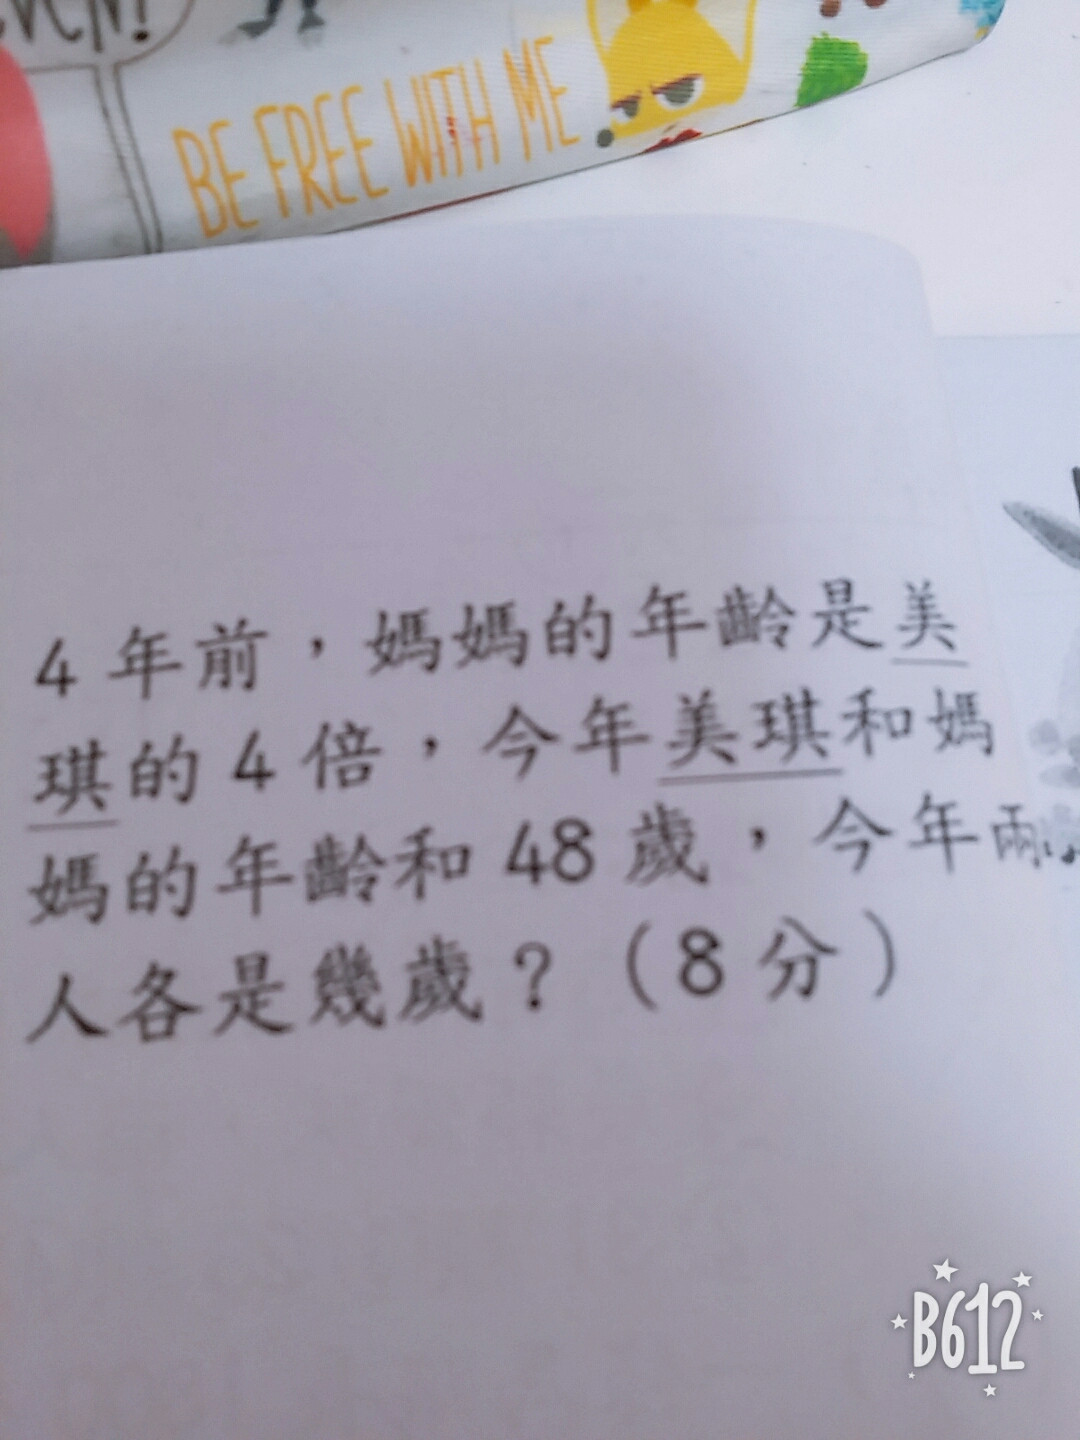 BE FREE WITH ME
4 年前，媽媽的年齡是美
琪的 4 倍，今年美琪和媽
媽的年齡和 48 歲，今年兩
人各是幾歲？（8 分）
B612